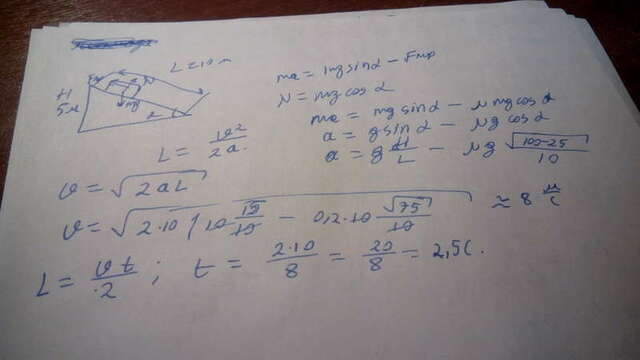 L = 10 м
H
5м
N
mg
α
ma = mg sinα - Fтр
N = mg cosα
ma = mg sinα - μmg cosα
a = g sinα - μg cosα
a = g H/L - μg √(100-25)/10
L = v²/2a
v = √(2aL)
v = √(2·10(10 · /10 - 0,2·10 √75/10)) ≈ 8 м/с
L = vt/2 ; t = 2·10/8 = 20/8 = 2,5 с.